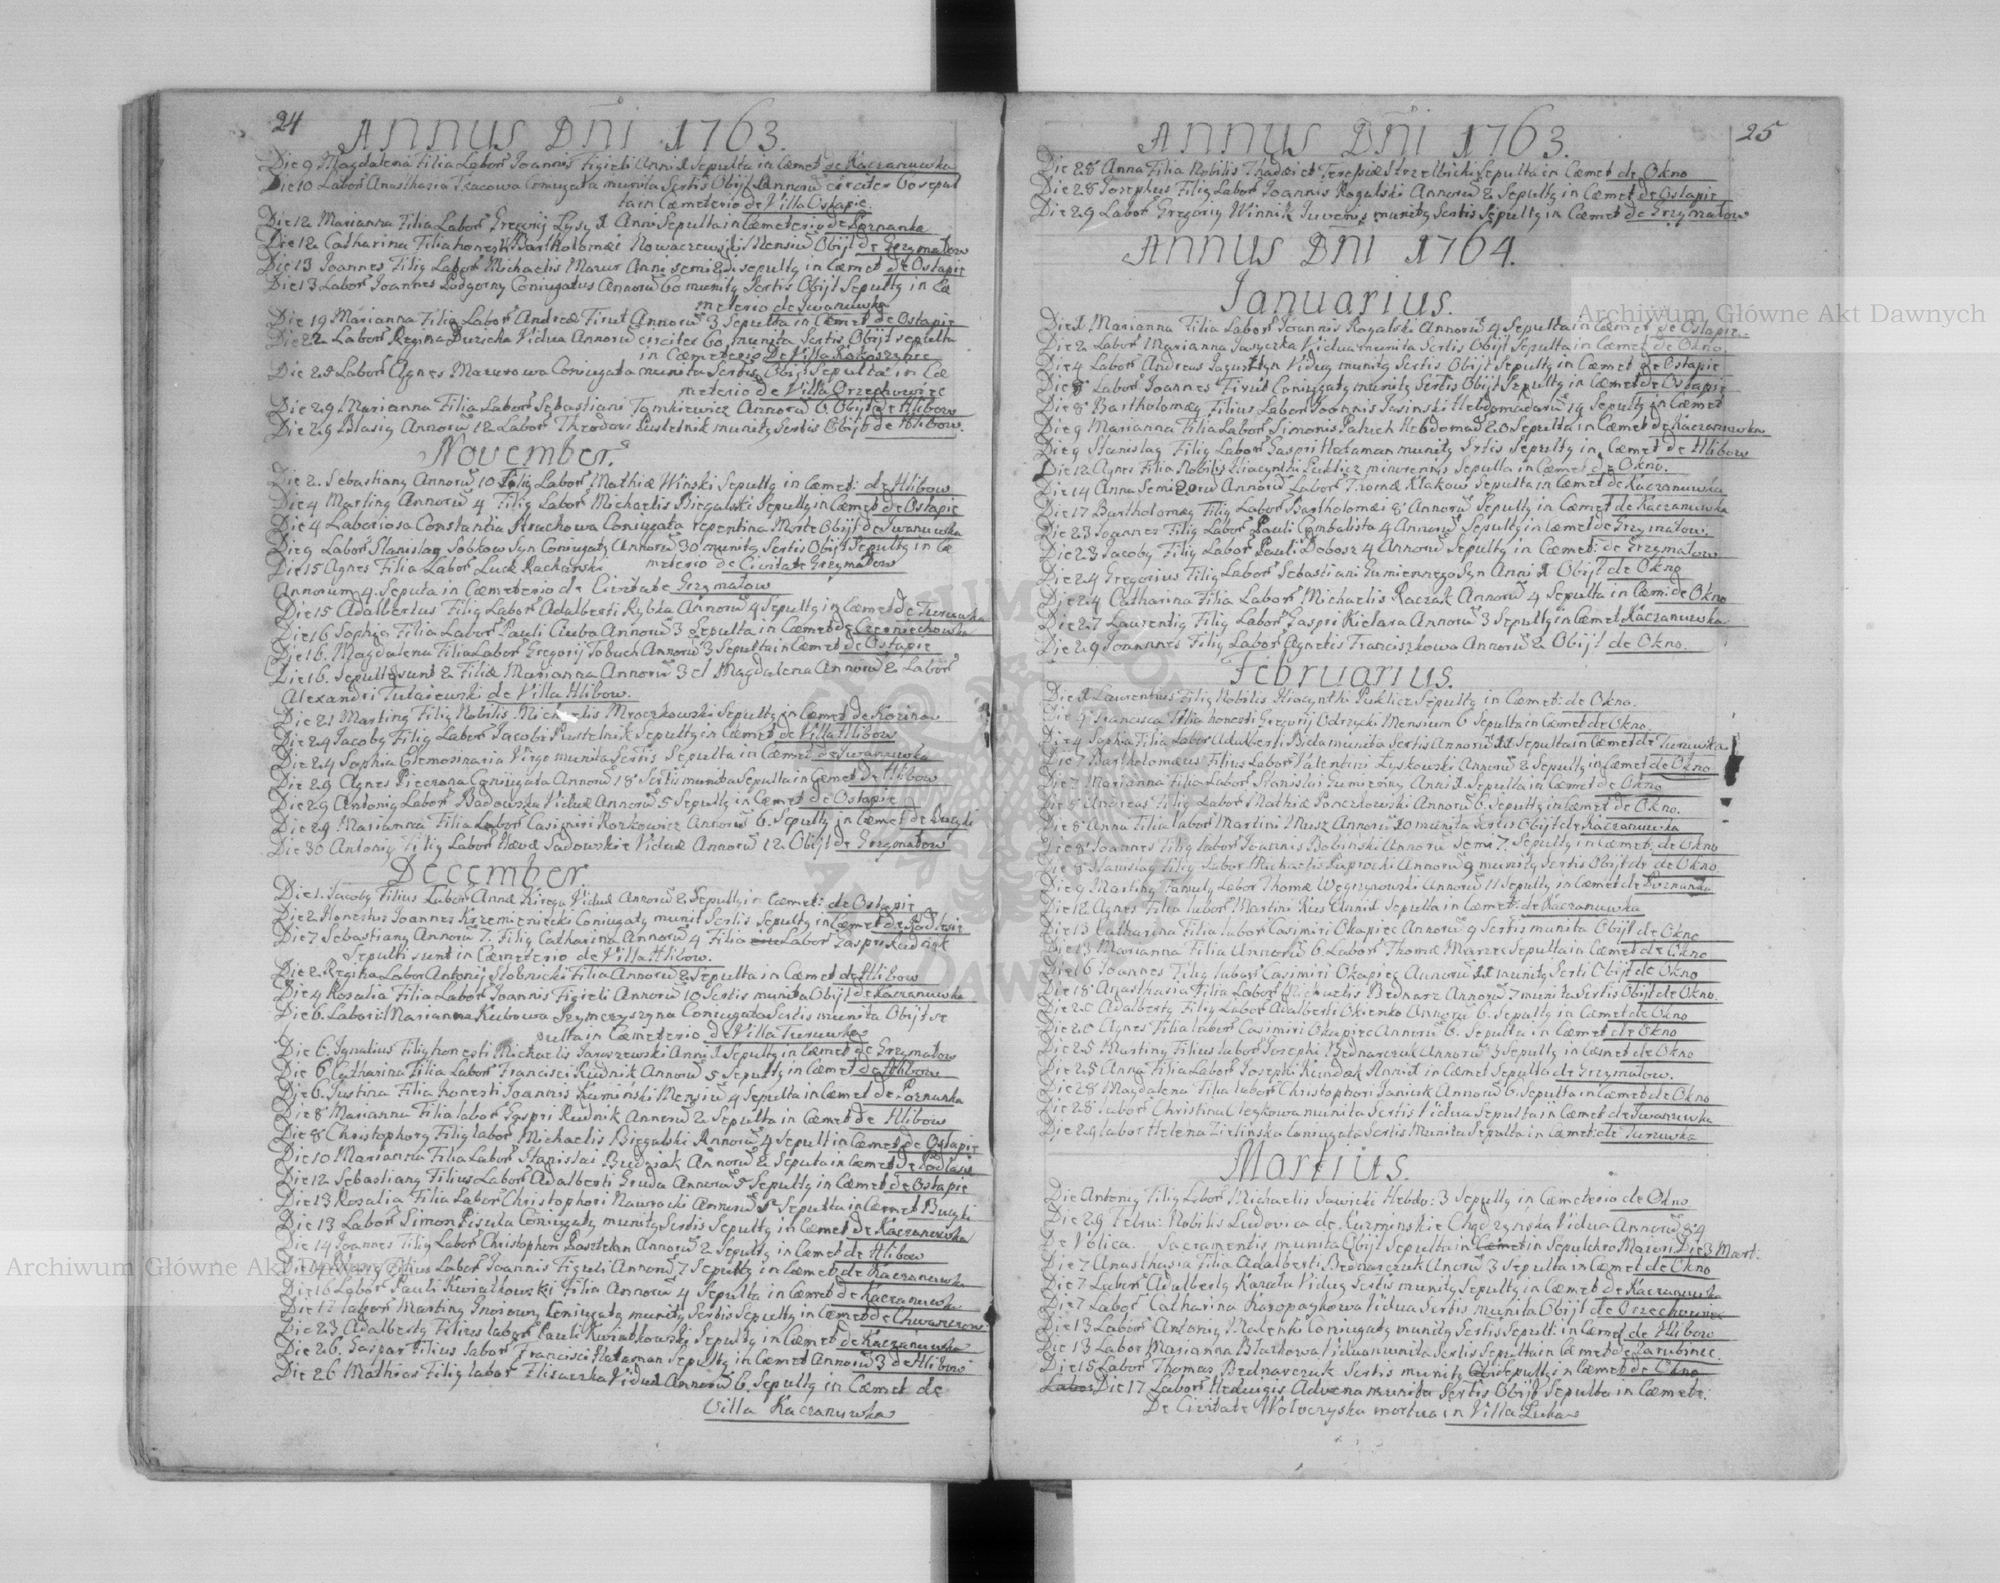 24
ANNUS DNI 1763.
Die 9 Magdalena Filia Labor Joannis Figieli Anni 1 Sepulta in Cæmet de Kaczanuwka
Die 10 Labor Anasthasia Tracowa Coniugata munita Sctis Obijt Annorū circiter 60 sepul
ta in Cæmeterio de Villa Ostapie.
Die 12 Marianna Filia Labor Gregorij Lysy 1 Anni Sepulta in Cæmeterio de Poznanka
Die 12 Catharina Filia honesti Bartholomæi Nowaczewski Mensiū Obijt de Grzymałow
Die 13 Joannes Filig Labor Michaelis Mazur Anni semi 2di sepultg in Cæmet de Ostapie
Die 13 Labor Joannes Podgorny Coniugatus Annorū 60 munitg Sctis Obijt Sepultg in Cæ
meterio de Iwanuwka
Die 19 Marianna Filia Labor Andreæ Firut Annorū 3 Sepulta in Cæmet de Ostapie
Die 22 Labor Regina Vidua Annorū circiter 60 munita Sctis Obijt sepulta
in Cæmeterio De Villa Kokoszynce
Die 28 Labor Agnes Mazurowa Coniugata munita Sctis Obijt Sepulta in Cæ
meterio de Villa Orzechowiec
Die 29 Marianna Filia Labor Sebastiani Tomkiewicz Annorū 6 Obijt de Hlibow
Die 29 Blasig Annorū 12 Labor Theodori Pustelnik munitg Sctis Obijt de Hlibow.
November.
Die 2. Sebastiang Annorū 10 Filig Labor Mathiæ Winski Sepultg in Cæmet: de Hlibow
Die 4 Marting Annorū 4 Filig Labor Michaelis Biegalski Sepultg in Cæmet de Ostapie
Die 4 Laboriosa Constantia Strachowa Coniugata repentina Morte Obijt de Iwanuwka
Die 9 Labor Stanislag Sobkow Syn Coniugatg Annorū 30 munitg Sctis Obijt Sepultg in Cæ
Die 15 Agnes Filia Labor Luck meterio de Civitate Grzymałow
Annorum 4. Seputa in Cæmeterio de Civitate Grzymałow
Die 15 Adalbertus Filig Labor Adalberti Rybka Annorū 4 Sepultg in Cæmet de Turuwka
Die 16 Sophia Filia Labor Pauli Ciuba Annorū 3 Sepulta in Cæmet de
Die 16. Magdalena Filia Labor Gregorij Annorū 3 Sepulta in Cæmet de Ostapie
Die 16. Sepultg sunt 2 Filiæ Marianna Annorū 3 et Magdalena Annorū 2 Labor
Alexandri de Villa Hlibow.
Die 21 Marting Filig Nobilis Michaelis Mroczkowski Sepultg in Cæmet de Kozina
Die 24 Jacobg Filig Labor Jacobi Pustelnik Sepultg in Cæmet de Villa Hlibow
Die 24 Sophia Elemosinaria Virgo munita Sctis Sepulta in Cæmet de Iwanuwka
Die 29 Agnes Coniugata Annorū 18 Sctis munita Sepulta in Cæmet de Hlibow
Die 29 Antonig Labor Badowska Viduæ Annorū 5 Sepultg in Cæmet de Ostapie
Die 29 Marianna Filia Labor Casimiri Annorū 6. Sepultg in Cæmet de Bucyki
Die 30 Antonig Filig Labor Hævæ Sadowskie Viduæ Annorū 12 Obijt de Grzymałow
December
Die 1. Jacobg Filius Labor Annæ Viduæ Annorū 2 Sepultg in Cæmet: de Ostapie
Die 2 Honestus Joannes Krzemieniecki Coniugatg munit Sctis Sepultg in Cæmet de
Die 7 Sebastiang Annorū 7. Filig Catharina Annorū 4 Filia Labor Gaspri Rudnik
Sepulti sunt in Cæmeterio de Villa Hlibow.
Die 2. Regina Labor Antonij Słobnicki Filia Annorū 2 Sepulta in Cæmet de Hlibow
Die 4 Rosalia Filia Labor Joannis Figieli Annorū 10 Sctis munita Obijt de Kaczanuwka
Die 6. Labori: Marianna Kubowa Szymczyszyna Coniugata Sctis munita Obijt se
pulta in Cæmeterio de Villa Turuwka
Die 6. Ignatius Filig honesti Michaelis Jaraszewski Anni 1 Sepultg in Cæmet de Grzymałow
Die 6 Catharina Filia Labor Francisci Rudnik Annorū 5 Sepultg in Cæmet de Hlibow
Die 6. Justina Filia honesti Joannis Kaminski Mensiū 4 Sepulta in Cæmet de Poznanka
Die 8 Marianna Filia labor Gaspri Rudnik Annorū 2 Sepulta in Cæmet de Hlibow
Die 8 Christophorg Filig labor Michaelis Biegalski Annorū 4 Sepult in Cæmet de Ostapie
Die 10 Marianna Filia Labor Stanislai Budziak Annorū 2 Seputa in Cæmet de Podlasie
Die 12 Sebastiang Filius Labor Adalberti Gruda Annorū 5 Sepultg in Cæmet de Ostapie
Die 13 Rosalia Filia Labor Christophori Nawrocki Annorū Sepulta in Cæmet Bucyki
Die 13 Labor Simon Pisula Coniugatg munitg Sctis Sepultg in Cæmet de Kaczanuwka
Die 14 Joannes Filig Labor Christophori Kasztelan Annorū 2 Sepultg in Cæmet de Hlibow
Die 14 Filius Labor Joannis Figieli Annorū 7 Sepultg in Cæmet de Kaczanuwka
Die 16 Labor Pauli Kwiatkowski Filia Annorū 4 Sepulta in Cæmet de Kaczanuwka
Die 17 labor Marting Coniugatg munitg Sctis Sepultg in Cæmet de
Die 23 Adalbertg Filius labor Pauli Kwiatkowski Sepultg in Cæmet de Kaczanuwka
Die 26. Gaspar Filius labor Francisci Hataman Sepultg in Cæmet Annorū 3 de Hlibow
Die 26 Mathias Filig labor Viduæ Annorū 6. Sepultg in Cæmet de
Villa Kaczanuwka
25
ANNUS DNI 1763.
Die 28 Anna Filia Nobilis Thadæi et Teresiæ Strzelbicki Sepulta in Cæmet de Okno
Die 28 Josephus Filig Labor Joannis Rogalski Annorū 2 Sepultg in Cæmet de Ostapie
Die 29 Labor Gregorig Winnik Juvenis munitg Sctis Sepultg in Cæmet de Grzymałow
ANNUS DNI 1764.
Januarius.
Die 1 Marianna Filia Labor Joannis Rogalski Annorū 4 Sepulta in Cæmet de Ostapie
Die 2 Labor Marianna Jasyczka Vidua munita Sctis Obijt Sepulta in Cæmet de Okno
Die 4 Labor Andreas Jagustyn Vidug munitg Sctis Obijt Sepultg in Cæmet de Ostapie
Die 8 Labor Joannes Firut Coniugatg munitg Sctis Obijt Sepultg in Cæmet de Ostapie
Die 8 Bartholomæg Filius Labor Joannis Jasinski Hebdomadarū 19 Sepultg in Cæmet
Die 9 Marianna Filia Labor Simonis Paluch Hebdomad 20 Sepulta in Cæmet de Kaczanuwka
Die 9 Stanislag Filig Labor Gaspri Hataman munitg Sctis Sepultg in Cæmet de Hlibow
Die 12 Agnes Filia Nobilis Hiacynthi Puklicz minorenis Sepulta in Cæmet de Okno.
Die 14 Anna Semi 2orū Annorū Labor Thomæ Krakow Sepulta in Cæmet de Kaczanuwka
Die 17 Bartholomæg Filig Labor Bartholomæi 8 Annorū Sepultg in Cæmet de Kaczanuwka
Die 23 Joannes Filig Labor Pauli Cymbalista 4 Annorū Sepultg in Cæmet de Grzymałow
Die 23 Jacobg Filig Labor Pauli Dobosz 4 Annorū Sepultg in Cæmet: de Grzymałow
Die 24 Gregorius Filig Labor Sebastiani Gumiennego Syn Anni 1 Obijt de Okno
Die 24 Catharina Filia Labor Michaelis Raczak Annorū 4 Sepulta in Cæm: de Okno
Die 27 Laurentig Filig Labor Gaspri Kielara Annorū 3 Sepultg in Cæmet Kaczanuwka
Die 29 Joannnes Filig Labor Agnetis Franciszkowa Annorū 2 Obijt de Okno.
Februarius.
Die 1 Laurentius Filig Nobilis Hiacynthi Puklicz Sepultg in Cæmet: de Okno.
Die 4 Francisca Filia honesti Gregorij Odrzycki Mensium 6 Sepulta in Cæmet de Okno
Die 4 Sophia Filia Labor Adalberti Bida munita Sctis Annorū 11 Sepulta in Cæmet de Turuwka
Die 7 Bartholomæus Filius Labor Valentini Lyskowski Annorū 2 Sepultg in Cæmet de Okno
Die 7 Marianna Filia Labor Stanislai Gumienny Anni 1 Sepulta in Cæmet de Okno
Die 8 Andreas Filig Labor Mathiæ Ponczkowski Annorū 6. Sepultg in Cæmet de Okno.
Die 8 Anna Filia labor Martini Musz Annorū 10 munita Sctis Obijt de Kaczanuwka
Die 8 Joannes Filig labor Joannis Bobinski Annorū Semi 7. Sepultg in Cæmet: de Okno
Die 8 Stanislag Filig labor Michaelis Paprocki Annorū 9 munitg Sctis Obijt de Okno
Die 9 Marting Famulg Labor Thomæ Węgrzynowski Annorū 11 Sepultg in Cæmet de Poznanka
Die 12 Agnes Filia labor Martini Kus Anni 1 Sepulta in Cæmet: de Kaczanuwka
Die 13 Catharina Filia labor Casimiri Okapiec Annorū 9 Sctis munita Obijt de Okno
Die 13 Marianna Filia Annorū 6 Labor Thomæ Marzec Sepulta in Cæmet de Okno
Die 16 Joannes Filig labor Casimiri Okapieg Annorū 11 munitg Scti Obijt de Okno
Die 18 Anasthasia Filia Labor Michaelis Bednarz Annorū 7 munita Sctis Obijt de Okno.
Die 20 Adalbertg Filig Labor Adalberti Okienko Annorū 6. Sepultg in Cæmet de Okno
Die 20 Agnes Filia labor Casimiri Okapiec Annorū 6. Sepulta in Cæmet de Okno
Die 25 Marting Filius labor Josephi Bednarczuk Annorū 3 Sepultg in Cæmet de Okno
Die 25 Anna Filia Labor Josephi Anni 1 in Cæmet Sepulta de Grzymałow.
Die 28 Magdalena Filia labor Christophori Janiuk Annorū 6. Sepulta in Cæmet de Okno
Die 28 labor Christina munita Sctis Vidua Sepulta in Cæmet de Iwanuwka
Die 29 labor Helena Zielinska Coniugata Sctis Munita Sepulta in Cæmet: de Turuwka
Martius.
Die Antonig Filig Labor Michaelis Sawicki Hebdo: 3 Sepultg in Cæmeterio de Okno
Die 29 Febru: Nobilis Ludovica de Kuzminskie Vidua Annorū 84
de Volica. Sacramentis munita Obijt Sepulta in Cæmet in Sepulchro Maiori Die 3 Mart:
Die 7 Anasthasia Filia Adalberti Bednarczuk Anorū 3 Sepulta in Cæmet de Okno
Die 7 Labor Adalbertg Karata Vidug Sctis munitg Sepultg in Cæmet de Kaczanuwka
Die 7 Labor Catharina Karopaykowa Vidua Sctis munita Obijt de Orzechowiec
Die 13 Labor Antonig Malenki Coniugatg munitg Sctis Sepult: in Cæmet de Hlibow
Die 13 Labor Marianna Blatkowa Vidua munita Sctis Sepulta in Cæmet de Zarubince
Die 15 Labor Thomas Bednarczuk Sctis munitg Obi Sepultg in Cæmet de Okno
Labor Die 17 Labor Hedwigis Advena munita Sctis Obijt Sepulta in Cæmete:
De Civitate Woloczyska mortua in Villa Luka
Archiwum Główne Akt Dawnych
Archiwum Główne Akt Dawnych